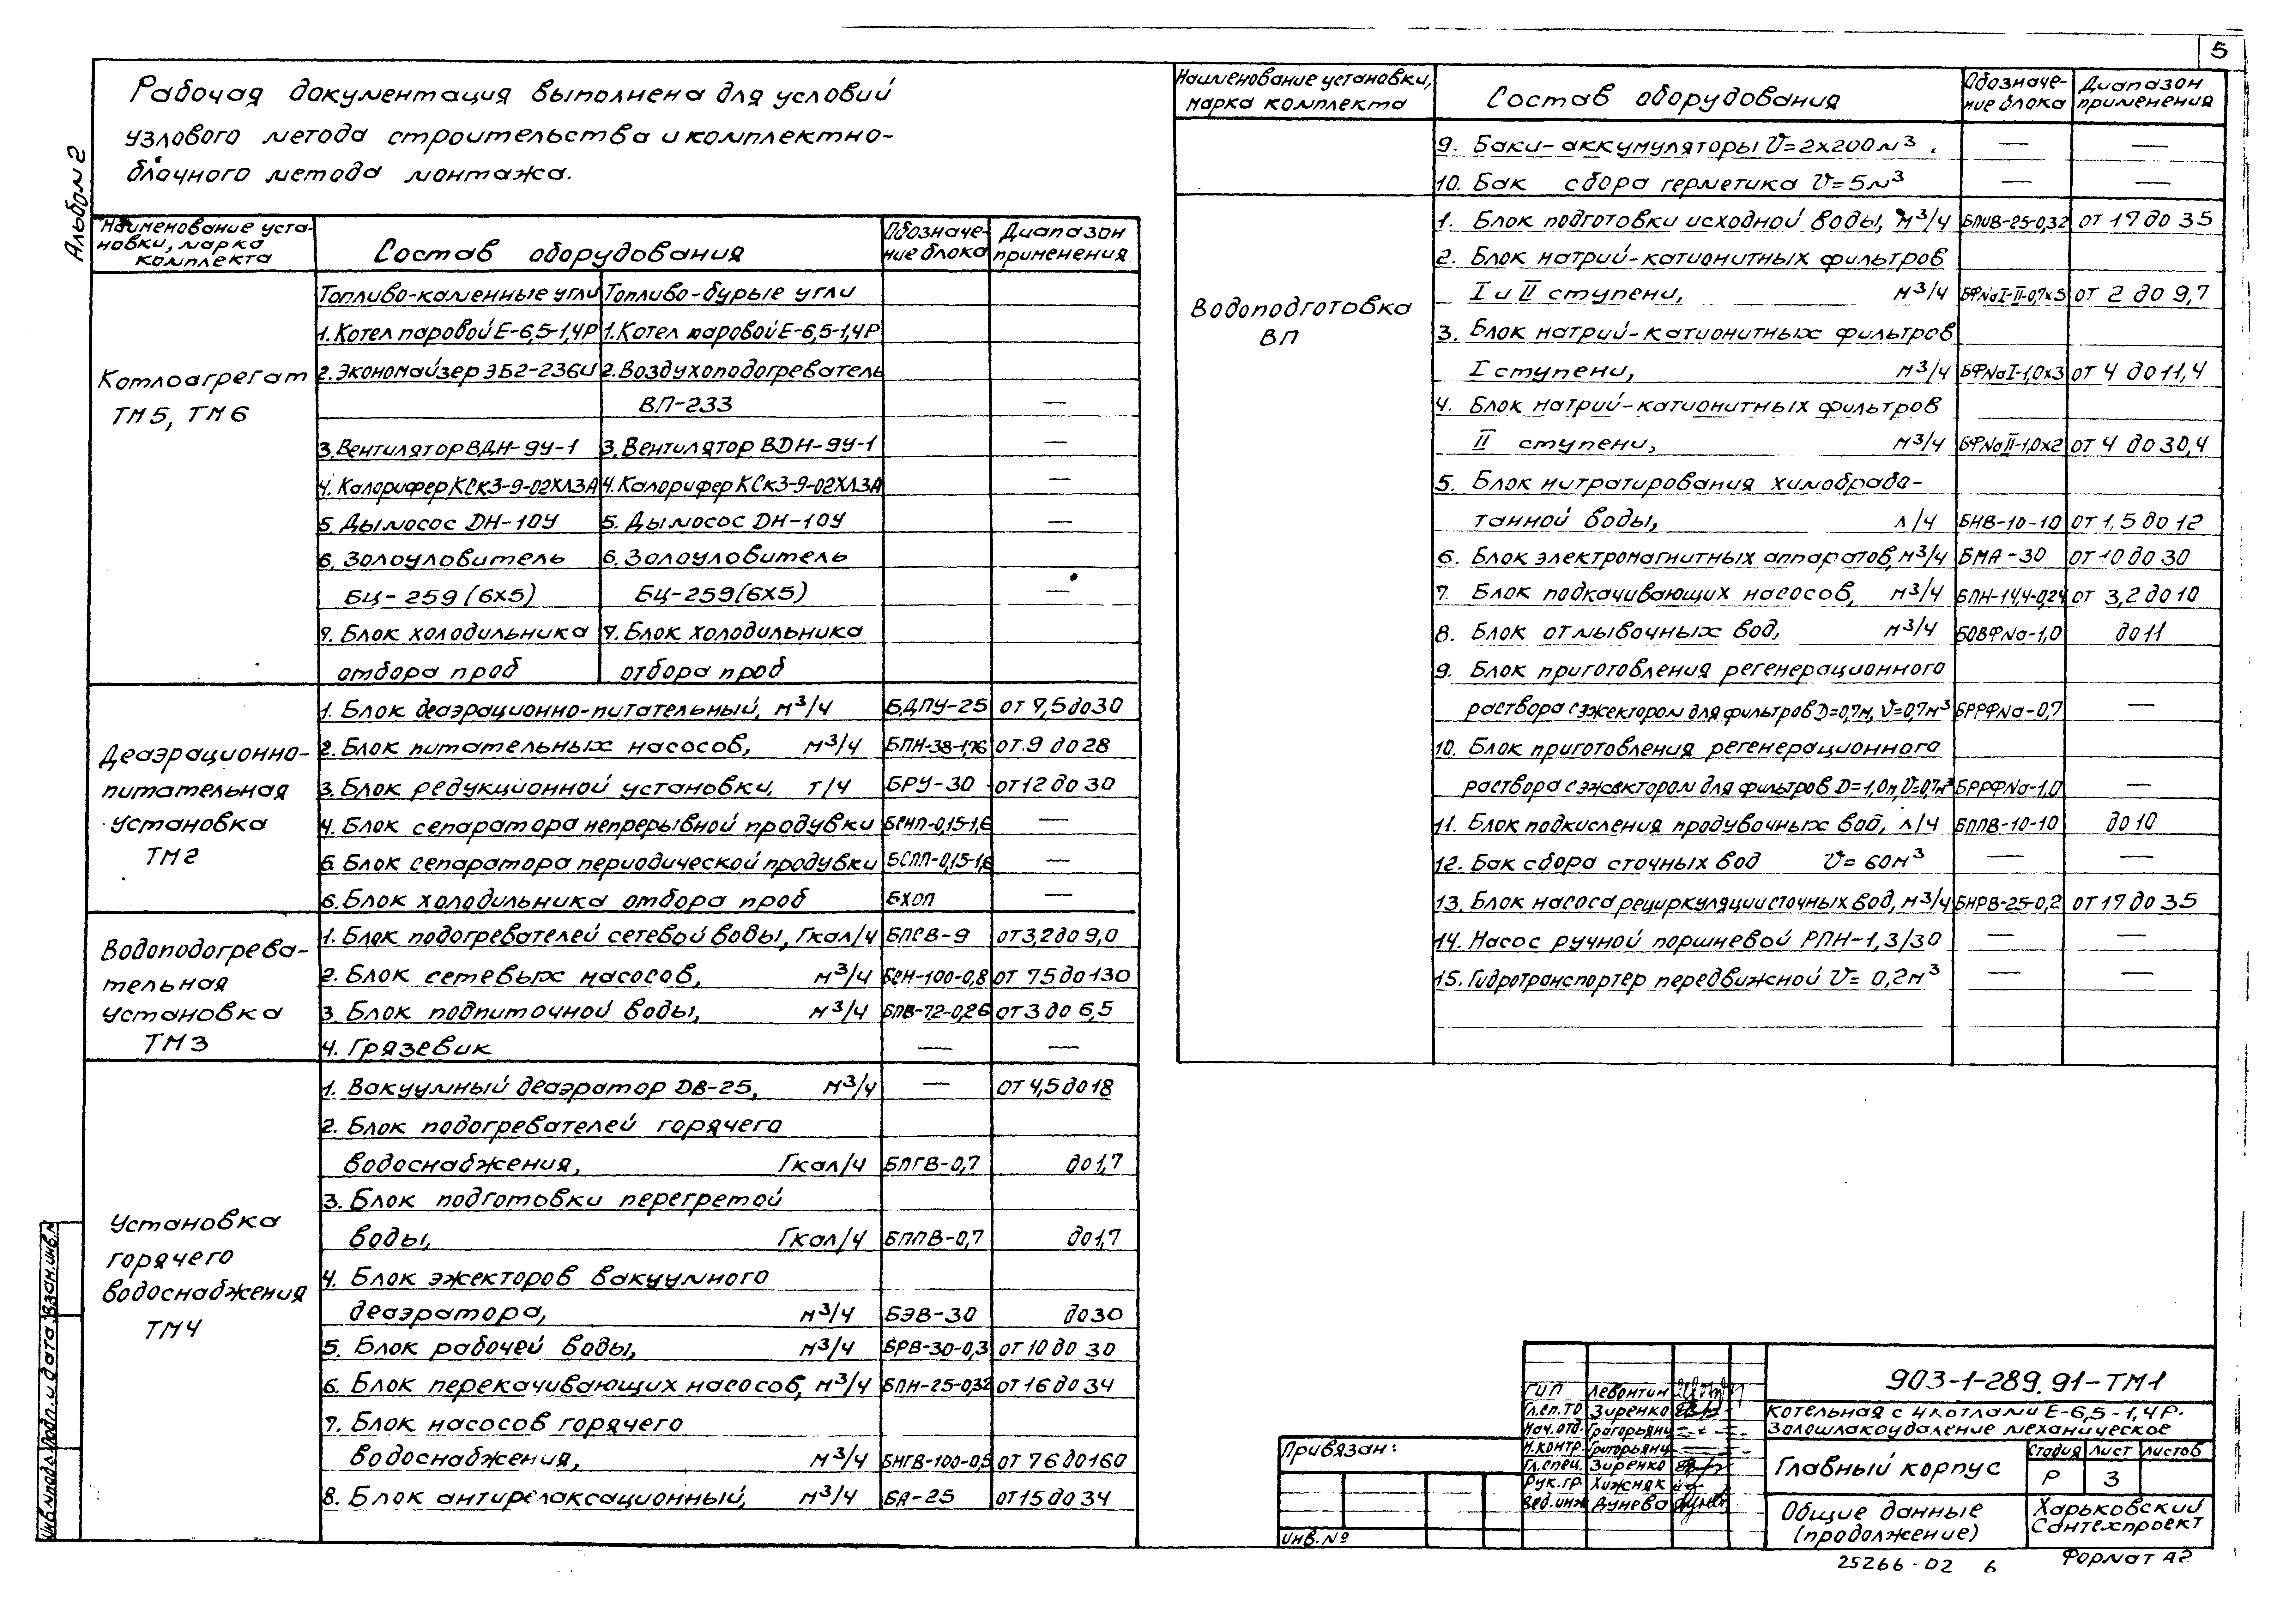 5
Альбом 2
Рабочая документация выполнена для условий
узлового метода строительства и комплектно-
блочного метода монтажа.
Наименование уста-
новки, марка
комплекта
Состав оборудования
Обозначе-
ние блока
Диапазон
применения
Котлоагрегат
ТМ5, ТМ6
Топливо-каменные угли Топливо-бурые угли
1. Котел паровой Е-6,5-1,4Р 1. Котел паровой Е-6,5-1,4Р
2. Экономайзер ЭБ2-236И 2. Воздухоподогреватель
ВП-233 —
3. Вентилятор ВДН-9У-1 3. Вентилятор ВДН-9У-1 —
4. Калорифер КСк3-9-02ХЛ3А 4. Калорифер КСк3-9-02ХЛ3А —
5. Дымосос ДН-10У 5. Дымосос ДН-10У —
6. Золоуловитель 6. Золоуловитель
БЦ-259 (6х5) БЦ-259 (6х5) —
7. Блок холодильника 7. Блок холодильника
отбора проб отбора проб
Деаэрационно-
питательная
установка
ТМ2
1. Блок деаэрационно-питательный, м³/ч БДПУ-25 от 7,5 до 30
2. Блок питательных насосов, м³/ч БПН-38-176 от 9 до 28
3. Блок редукционной установки, т/ч БРУ-30 от 12 до 30
4. Блок сепаратора непрерывной продувки БСНП-0,15-1,6 —
5. Блок сепаратора периодической продувки БСПП-0,15-1,6 —
6. Блок холодильника отбора проб БХОП —
Водоподогрева-
тельная
установка
ТМ3
1. Блок подогревателей сетевой воды, Гкал/ч БПСВ-9 от 3,2 до 9,0
2. Блок сетевых насосов, м³/ч БСН-100-0,8 от 75 до 130
3. Блок подпиточной воды, м³/ч БПВ-7,2-0,26 от 3 до 6,5
4. Грязевик — —
Установка
горячего
водоснабжения
ТМ4
1. Вакуумный деаэратор ДВ-25, м³/ч — от 4,5 до 18
2. Блок подогревателей горячего
водоснабжения, Гкал/ч БПГВ-0,7 до 1,7
3. Блок подготовки перегретой
воды, Гкал/ч БППВ-0,7 до 1,7
4. Блок эжекторов вакуумного
деаэратора, м³/ч БЭВ-30 до 30
5. Блок рабочей воды, м³/ч БРВ-30-0,3 от 10 до 30
6. Блок перекачивающих насосов, м³/ч БПН-25-0,32 от 16 до 34
7. Блок насосов горячего
водоснабжения, м³/ч БНГВ-100-0,5 от 76 до 160
8. Блок антирелаксационный, м³/ч БА-25 от 15 до 34
Наименование установки,
марка комплекта
Состав оборудования
Обозначе-
ние блока
Диапазон
применения
9. Баки-аккумуляторы V=2х200м³. — —
10. Бак сбора герметика V=5м³ — —
Водоподготовка
ВП
1. Блок подготовки исходной воды, м³/ч БПИВ-25-0,32 от 17 до 35
2. Блок натрий-катионитных фильтров
I и II ступени, м³/ч БФNaI-II-0,7х5 от 2 до 9,7
3. Блок натрий-катионитных фильтров
I ступени, м³/ч БФNaI-1,0х3 от 4 до 11,4
4. Блок натрий-катионитных фильтров
II ступени, м³/ч БФNaII-1,0х2 от 4 до 30,4
5. Блок нитратирования химобрабо-
танной воды, л/ч БНВ-10-10 от 1,5 до 12
6. Блок электромагнитных аппаратов, м³/ч БМА-30 от 10 до 30
7. Блок подкачивающих насосов, м³/ч БПН-14,4-0,24 от 3,2 до 10
8. Блок отмывочных вод, м³/ч БОВФNa-1,0 до 11
9. Блок приготовления регенерационного
раствора с эжектором для фильтров D=0,7м, V=0,7м³ БРРФNa-0,7 —
10. Блок приготовления регенерационного
раствора с эжектором для фильтров D=1,0м, V=0,7м³ БРРФNa-1,0 —
11. Блок подкисления продувочных вод, л/ч БППВ-10-10 до 10
12. Бак сбора сточных вод V=60м³ — —
13. Блок насоса рециркуляции сточных вод, м³/ч БНРВ-25-0,2 от 17 до 35
14. Насос ручной поршневой РПН-1,3/30 — —
15. Гидротранспортер передвижной V=0,2м³ — —
Инв.№подл. Подп. и дата Взам.инв.№
Привязан:
Инв.№
ГИП Левонтин
Гл.сп.ТО Зиренко
Нач.отд. Григорьянц
Н.контр. Григорьянц
Гл.спец. Зиренко
Рук.гр. Хижняк
Вед.инж. Дунева
903-1-289.91-ТМ1
Котельная с 4 котлами Е-6,5-1,4Р.
Золошлакоудаление механическое
Главный корпус
Стадия Лист Листов
Р 3
Общие данные
(продолжение)
Харьковский
Сантехпроект
25266-02 6
Формат А2